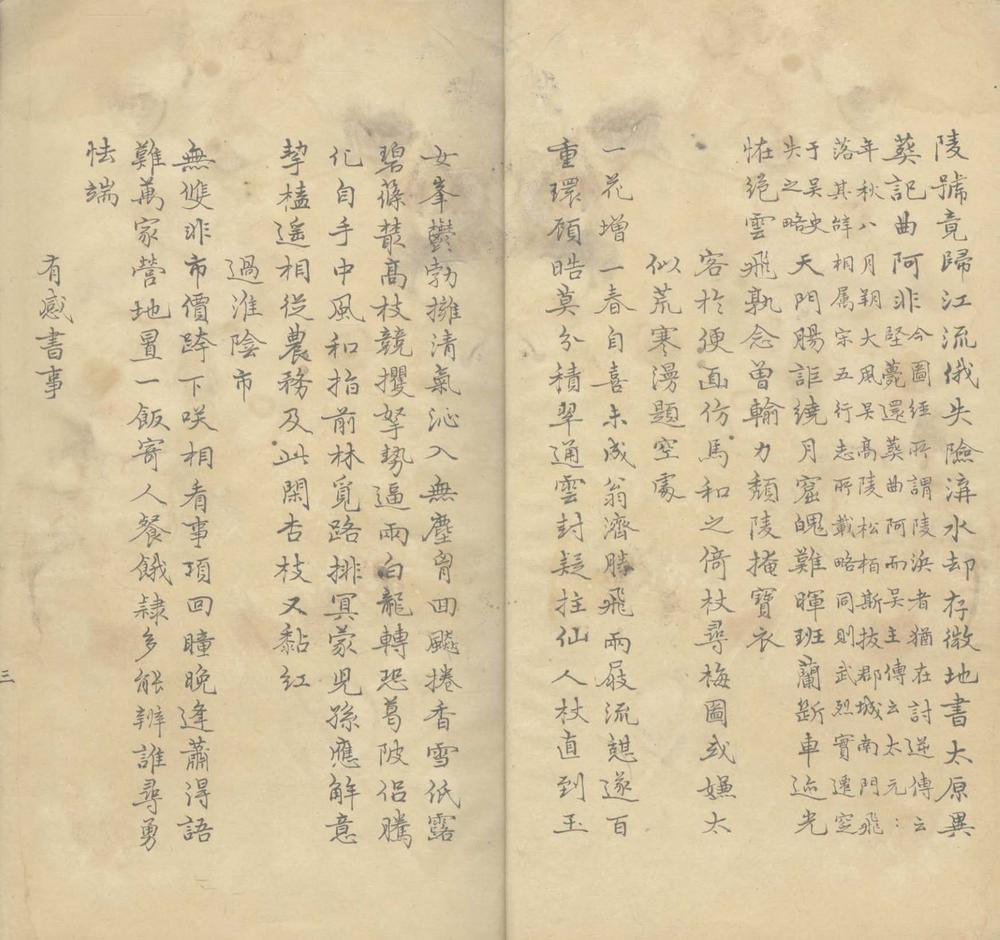 陵號竟歸江流俄失險漭水却存微地書太原異
葬記曲阿非
今圖經所謂陵浜者猶在討逆傳云
堅薨還葬曲阿而吳主傳云太元:
年秋八月朔大風吳高陵松栢斯拔郡城南門飛
落其辭相属宗五行志所載略同則武烈實遷空
于吳史
失之略
天門腸詎繞月窟魄難暉班蘭斷車迹光
恠绝雲飛孰念曾輸力頹陵掩寶衣
客於便面仿馬和之倚杖尋梅圖或嫌太
似荒寒漫題空處
一花增一春自喜未成翁濟勝飛兩屐流憩遂百
重環頎晧莫分積翠通雲封疑拄仙人杖直到玉
女峯鬱勃擁清氣沁入無塵胷回飈捲香雪低露
碧蓧䕺高枝競攫拏勢逼兩白龍轉恐葛陂侣騰
化自手中風和指前林覓路排冥蒙児孫應解意
挈榼遥相從農務及此閑杏枝又黏红
過淮陰市
無雙非市價跨下咲相看事項回瞳晚逢蕭淂語
難萬家營地置一飯寄人餐餓隸多能辨誰尋勇
怯端
有感書事
三